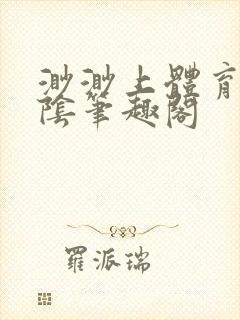 渺渺上體育
陰筆趣閣
羅派瑞